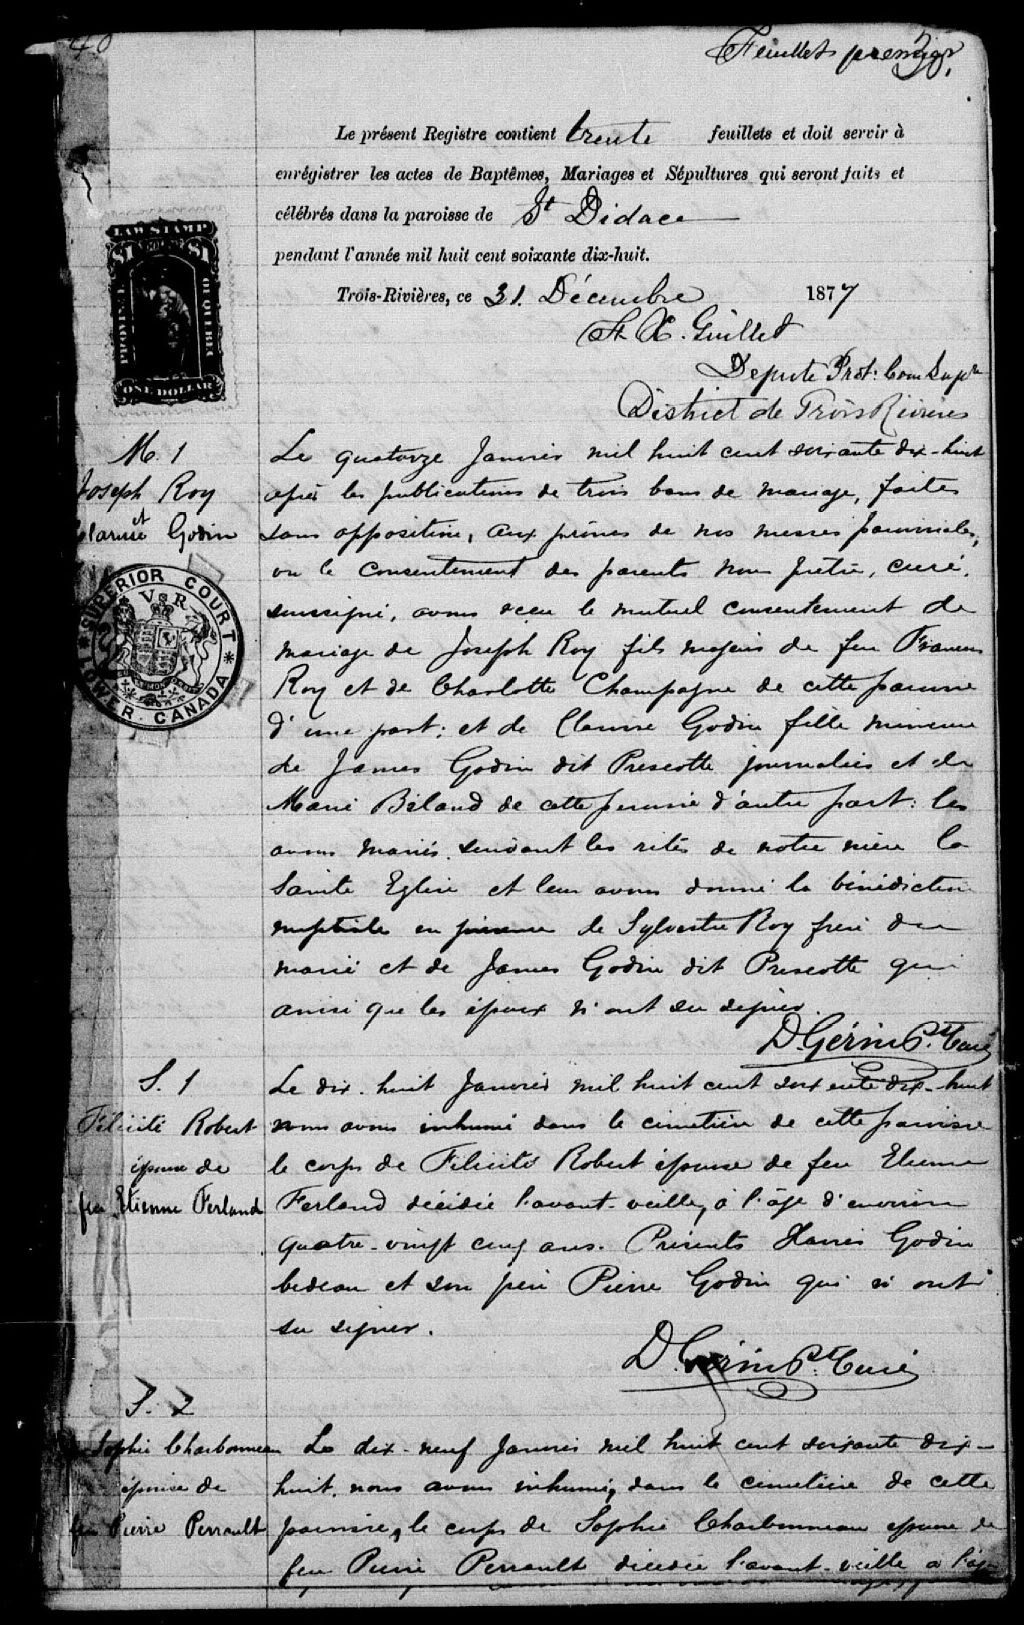 40
Feuillet premier.
Le présent Registre contient trente feuillets et doit servir à
enrégistrer les actes de Baptêmes, Mariages et Sépultures qui seront faits et
célébrés dans la paroisse de St Didace
pendant l'année mil huit cent soixante dix-huit.
Trois-Rivières, ce 31. Décembre 1877
Guillet
Depute Prot: Cour Supre
District de Trois Rivières
LAW STAMP
$1 $1
PROVINCE OF QUEBEC
ONE DOLLAR
M. 1
Joseph Roy
et
Clarisse Godin
SUPERIOR COURT
V R
LOWER CANADA
Le quatorze Janvier mil huit cent soixante dix-huit
après les publications de trois bans de mariage, faites
sans opposition, aux prônes de nos messes paroissiales,
vu le consentement des parents nous prêtre, curé,
soussigné, avons reçu le mutuel consentement de
mariage de Joseph Roy fils majeur de feu Francois
Roy et de Charlotte Champagne de cette paroisse
d'une part; et de Clarisse Godin fille mineure
de James Godin dit Prescotte journalier et de
Marie de cette paroisse d'autre part: les
avons mariés suivant les rites de notre mère la
Sainte Eglise et leur avons donné la bénédiction
nuptiale en présence de Sylvestre Roy frère du
marié et de James Godin dit Prescotte qui
ainsi que les époux n'ont su signer.
D. Gérin Ptre Curé
S. 1
Félicité Robert
épouse de
feu Etienne Ferland
Le dix-huit Janvier mil huit cent soixante dix-huit
nous avons inhumé dans le cimetière de cette paroisse
le corps de Félicité Robert épouse de feu Etienne
Ferland décédée l'avant-veille, à l'âge d'environ
quatre-vingt cinq ans. Présents Godin
bedeau et son père Pierre Godin qui n'ont
su signer.
D. Gérin Ptre Curé
S. 2
Sophie Charbonneau
épouse de
feu Pierre Perrault
Le dix-neuf Janvier mil huit cent soixante dix-
huit, nous avons inhumé, dans le cimetière de cette
paroisse, le corps de Sophie Charbonneau epouse de
feu Pierre Perrault décédée l'avant-veille à l'âge